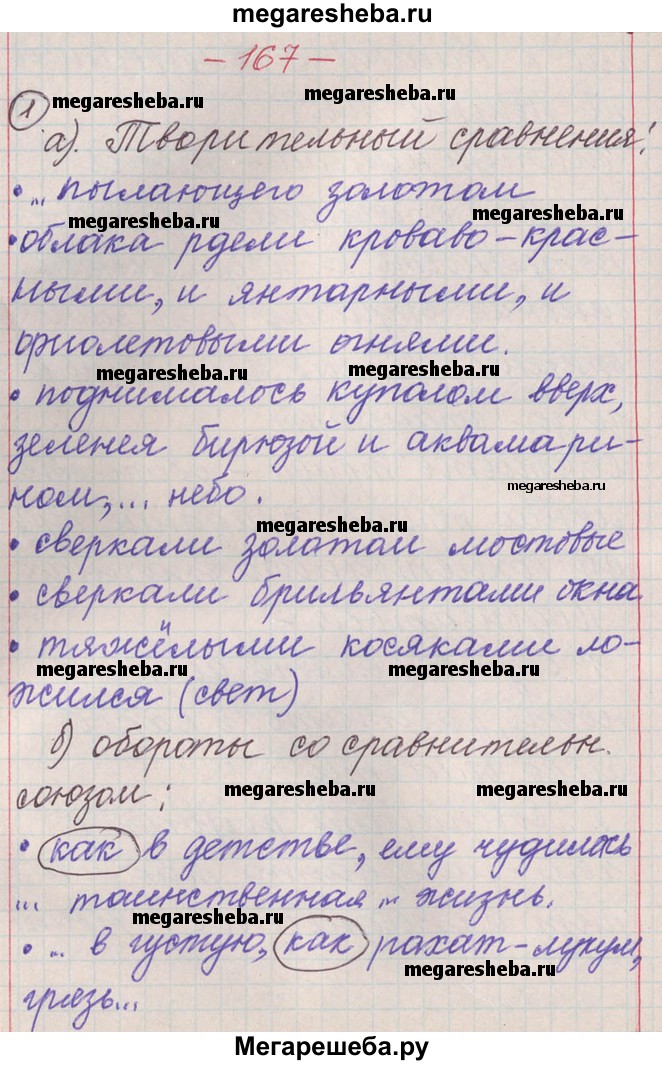 megaresheba.ru
— 167 —
1 megaresheba.ru megaresheba.ru
а). Творительный сравнения:
• ... пылающего золотом
megaresheba.ru megaresheba.ru
• облака рдели кроваво-крас-
ными, и янтарными, и
фиолетовыми огнями.
megaresheba.ru megaresheba.ru
• поднималось куполом вверх,
зеленея бирюзой и аквамари-
megaresheba.ru
ном,... небо.
megaresheba.ru
• сверкали золотом мостовые
• сверкали брильянтами окна
• тяжёлыми косяками ло-
megaresheba.ru megaresheba.ru
жился (свет)
б) обороты со сравнительн.
союзом:
megaresheba.ru megaresheba.ru
• как в детстве, ему чудилась
... таинственная ... жизнь.
megaresheba.ru
• ... в густую, как рахат-лукум,
megaresheba.ru
грязь...
Мегарешеба.ру